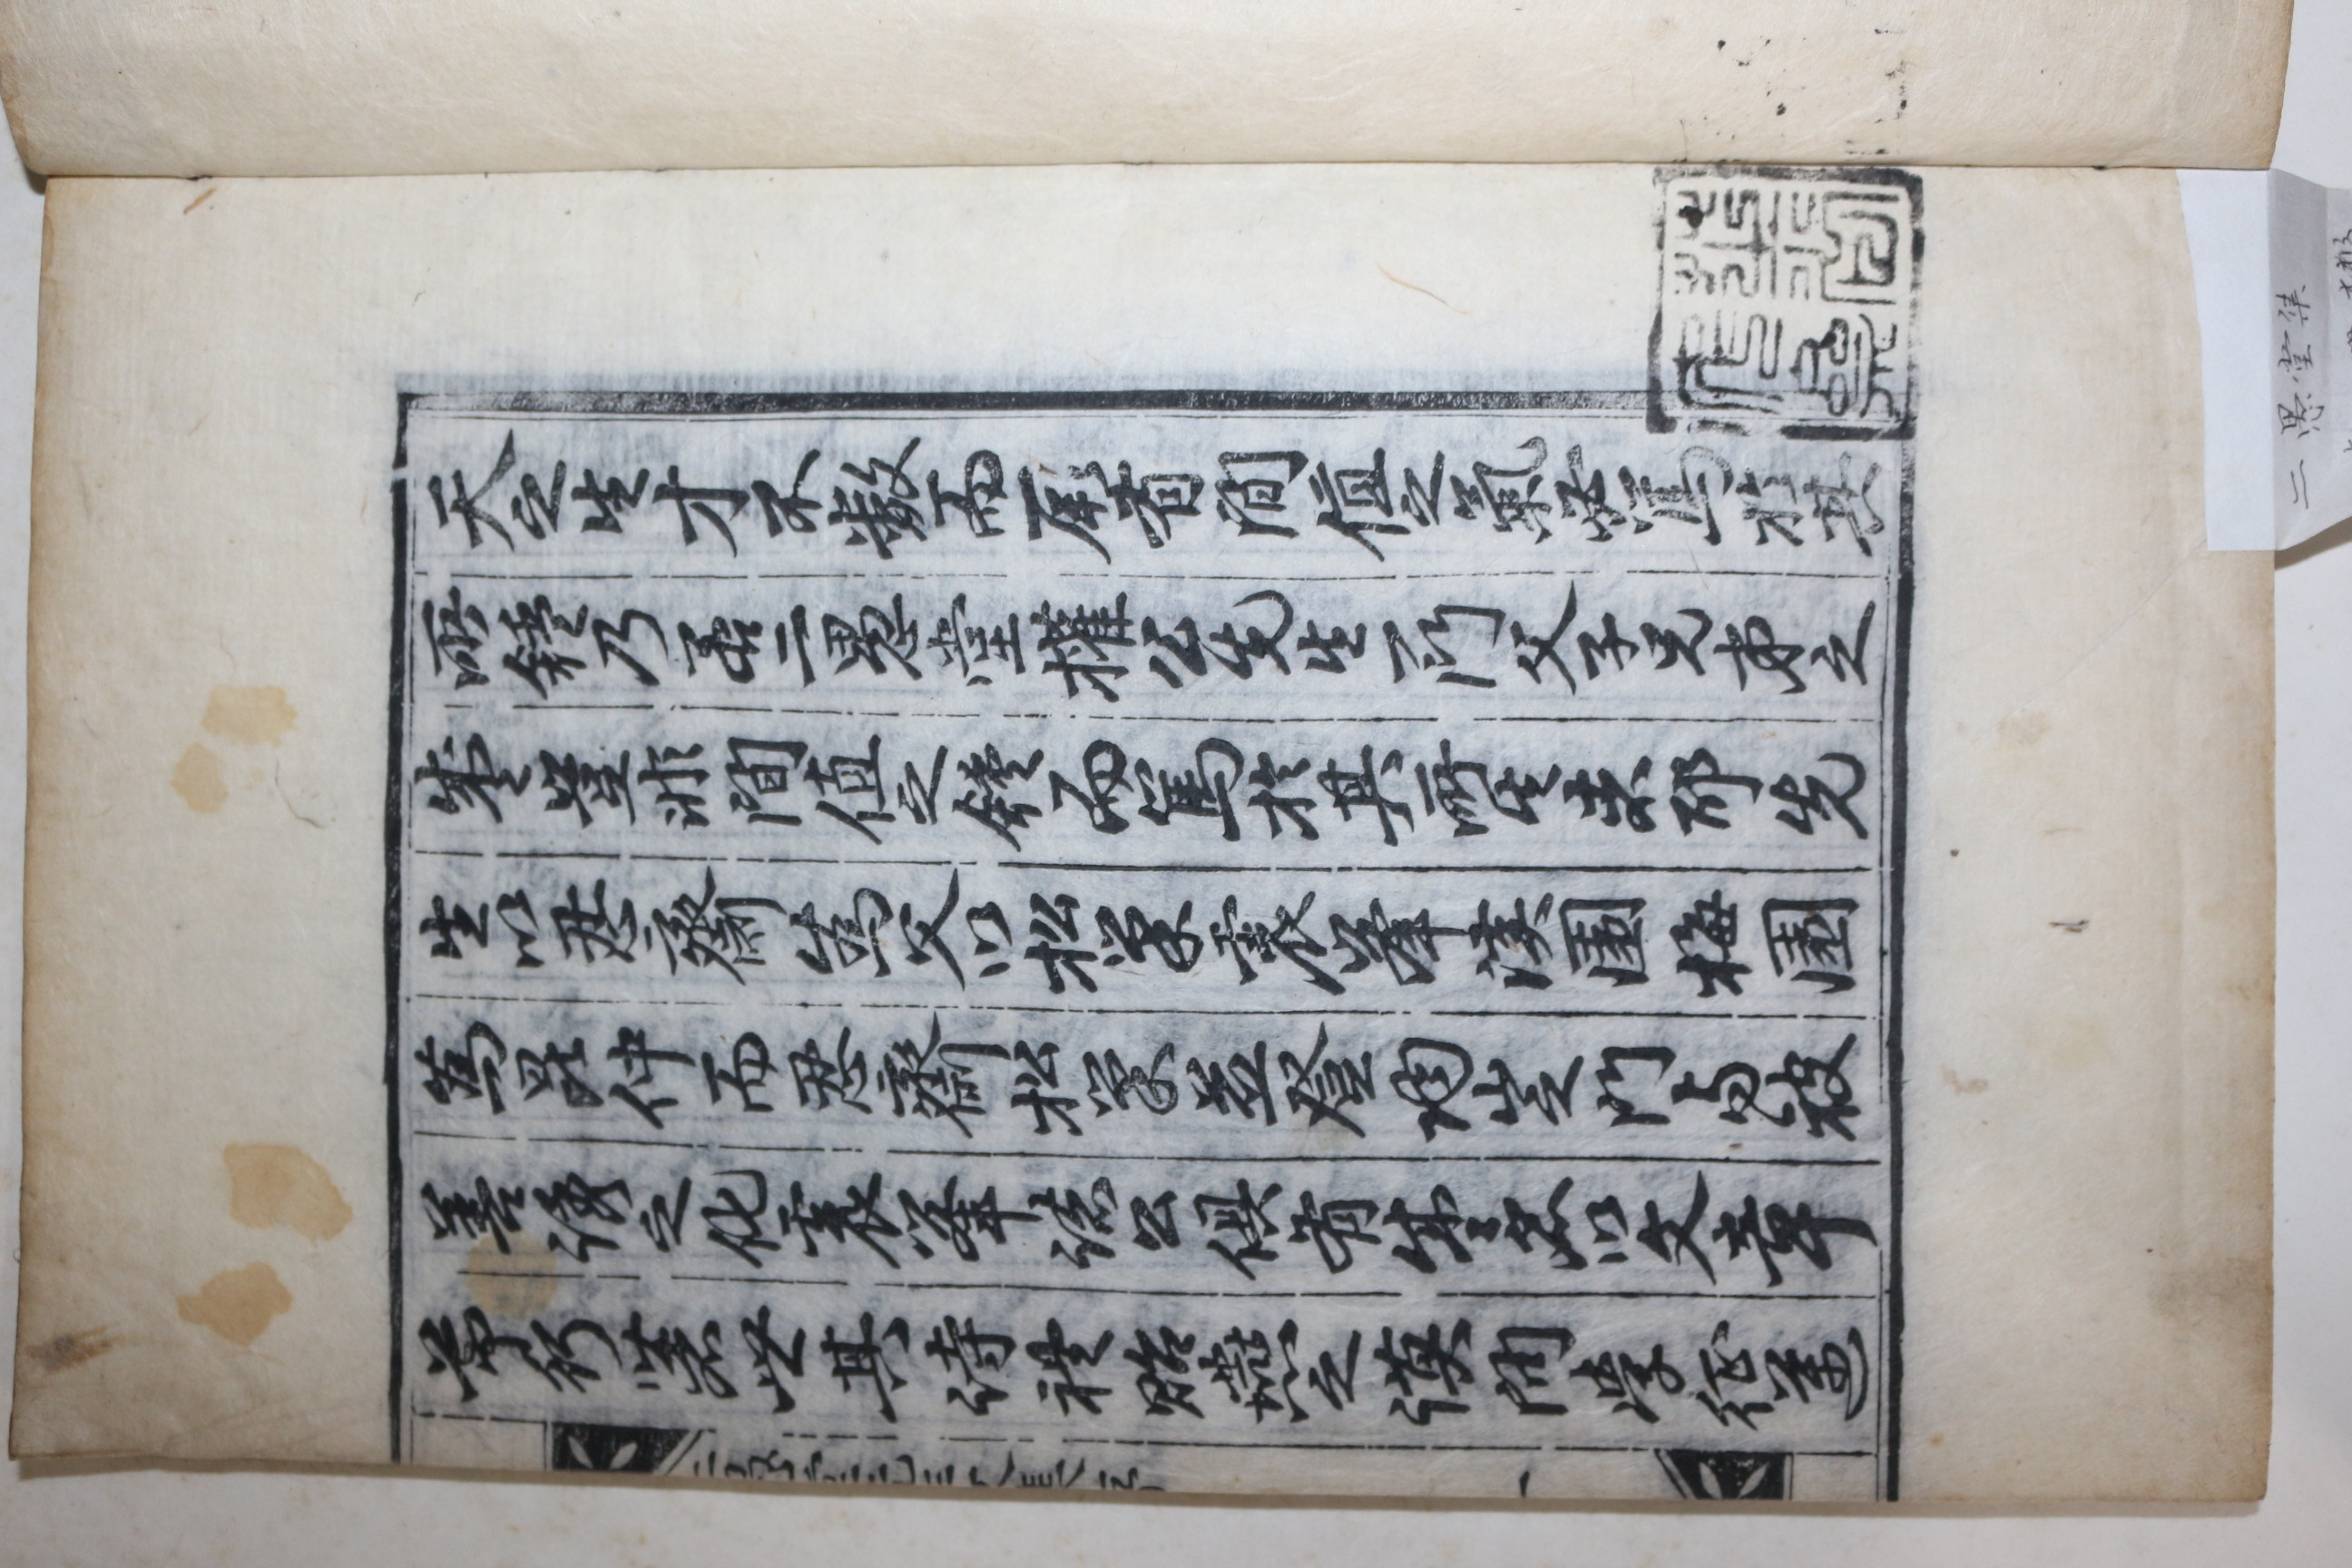 天之生才不數而厚有間值之氣必篤於其
所鍾乃若二愚堂權公先生一門父子兄弟之
盛豈非間值之鍾而篤於其所生者耶先
生以忍齋爲父以松巢震峯漢園梅園
爲昆仲而忍齋松巢並登陶山之門与被
善誘之化震峯諸公俱有盛名以文章
節行著世其詩禮貽燕之謨問學征邁
二愚堂先生文集序
一
二愚堂集